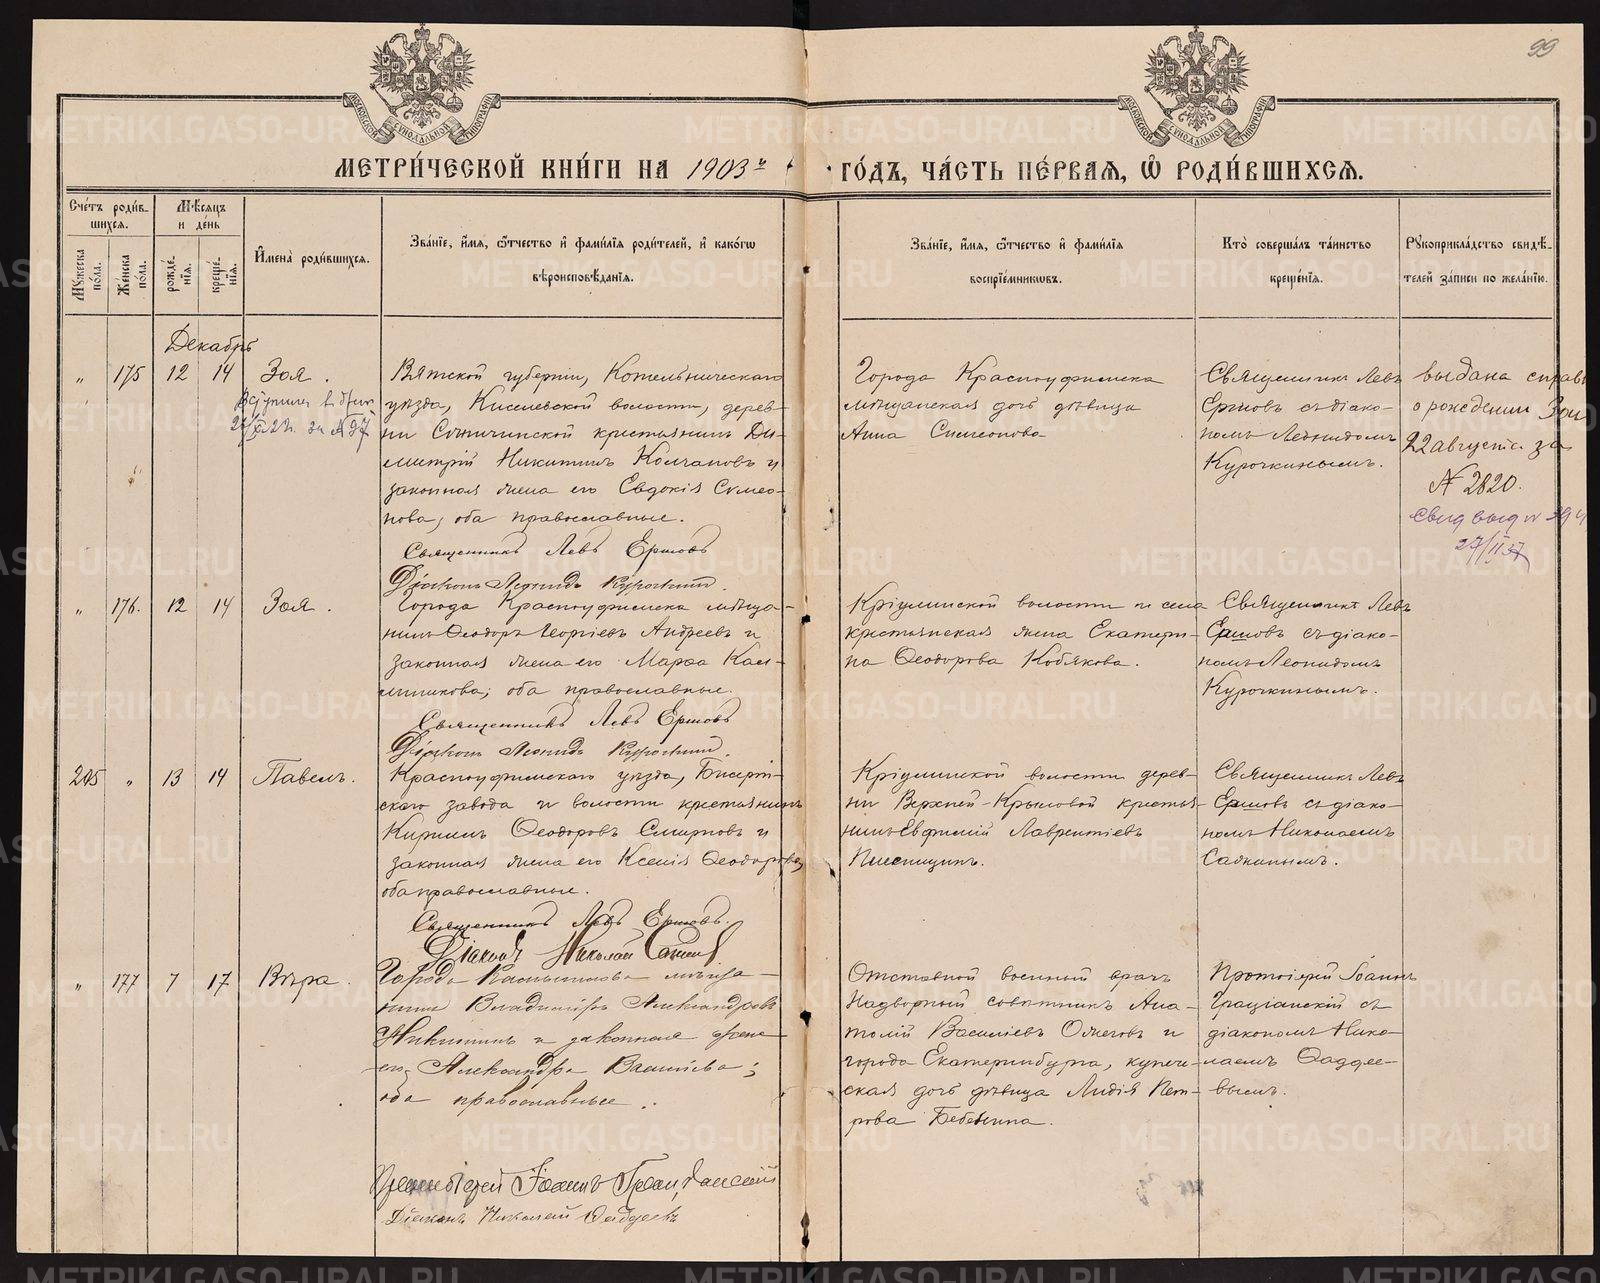 99
МОСКОВСКОЙ СѴНОДАЛЬНОЙ ТИПОГРАФІИ
МОСКОВСКОЙ СѴНОДАЛЬНОЙ ТИПОГРАФІИ
МЕТРИ́ЧЕСКОЙ КНИ́ГИ НА 1903й ГО́ДЪ, ЧА́СТЬ ПЕ́РВАЯ, Ѿ РОДИ́ВШИХСЯ.
Сче́тъ роди́в-
шихся.
Мѣ́сяцъ
и де́нь
Мꙋ́жеска по́ла.
Же́нска по́ла.
рожде́-нія.
креще́-нія.
И҆мена̀ роди́вшихся.
Зва́нїе, и҆́мя, ѻ҆́тчество и҆ фами́лїя роди́телей, и҆ како́гѡ
вѣроисповѣ́данїя.
Зва́нїе, и҆́мя, ѻ҆́тчество и҆ фами́лїя
воспрїе́мникѡвъ.
Кто̀ соверша́лъ та́инство
креще́нїя.
Рꙋкоприкла́дство свидѣ́-
телей за́писи по жела́нїю.
Декабрь
„ 175 12 14 Зоя.
Вятской губерніи, Котельническаго
уѣзда, Киселевской волости, дерев-
ни крестьянинъ Ди-
митрій Никитинъ Колчановъ и
законная жена его Евдокія Симео-
нова, оба православные.
Священникъ Левъ Ершовъ
Діаконъ Леонидъ Курочкинъ.
Города Красноуфимска
мѣщанская дочь дѣвица
Анна Симеонова
Священникъ Левъ
Ершовъ съ діако-
номъ Леонидомъ
Курочкинымъ.
выдана справ
о рождении Зои
22 августа за
N 2820.
Свид выд N 394
27/II 37
„ 176. 12 14 Зоя.
Города Красноуфимска мѣща-
нинъ Ѳеодоръ Георгіевъ Андреевъ и
законная жена его Марѳа Кал-
оба православные.
Священникъ Левъ Ершовъ
Діаконъ Леонидъ Курочкинъ.
Кріулинской волости и села
крестьянская жена Екатери-
на Ѳеодорова Кобякова.
Священникъ Левъ
Ершовъ съ діако-
номъ Леонидомъ
Курочкинымъ.
205 „ 13 14 Павелъ.
Красноуфимскаго уѣзда, Бисерт-
скаго завода и волости крестьянинъ
Кириллъ Ѳеодоровъ Смирновъ и
законная жена его Ксенія Ѳеодорова,
оба православные.
Священникъ Левъ Ершовъ.
Діаконъ Николай
Кріулинской волости дерев-
ни Верхней-Крыловой крестья-
нинъ Евфимій Лаврентіевъ
Священникъ Левъ
Ершовъ съ діако-
номъ Николаемъ
„ 177 7 17 Вѣра.
Города мѣща-
нинъ Владиміръ Александровъ
Никитинъ и законная жена
его Александра Васильева;
оба православные.
Протоіерей Іоаннъ
Діаконъ Николай Ѳаддеевъ
Отставной военный врачъ
Надворный совѣтникъ Ана-
толій Васильевъ Ожеговъ и
города Екатеринбурга, купече-
ская дочь дѣвица Лидія Пет-
рова Бебенина.
Протоіерей Іоаннъ
съ
діакономъ Нико-
лаемъ Ѳаддее-
вымъ.
METRIKI.GASO-URAL.RU